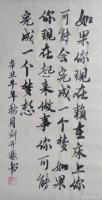 如果你现在赖在床上你
可能会完成一个梦如果
你现在起来做事你可能
完成一个梦想
辛丑年